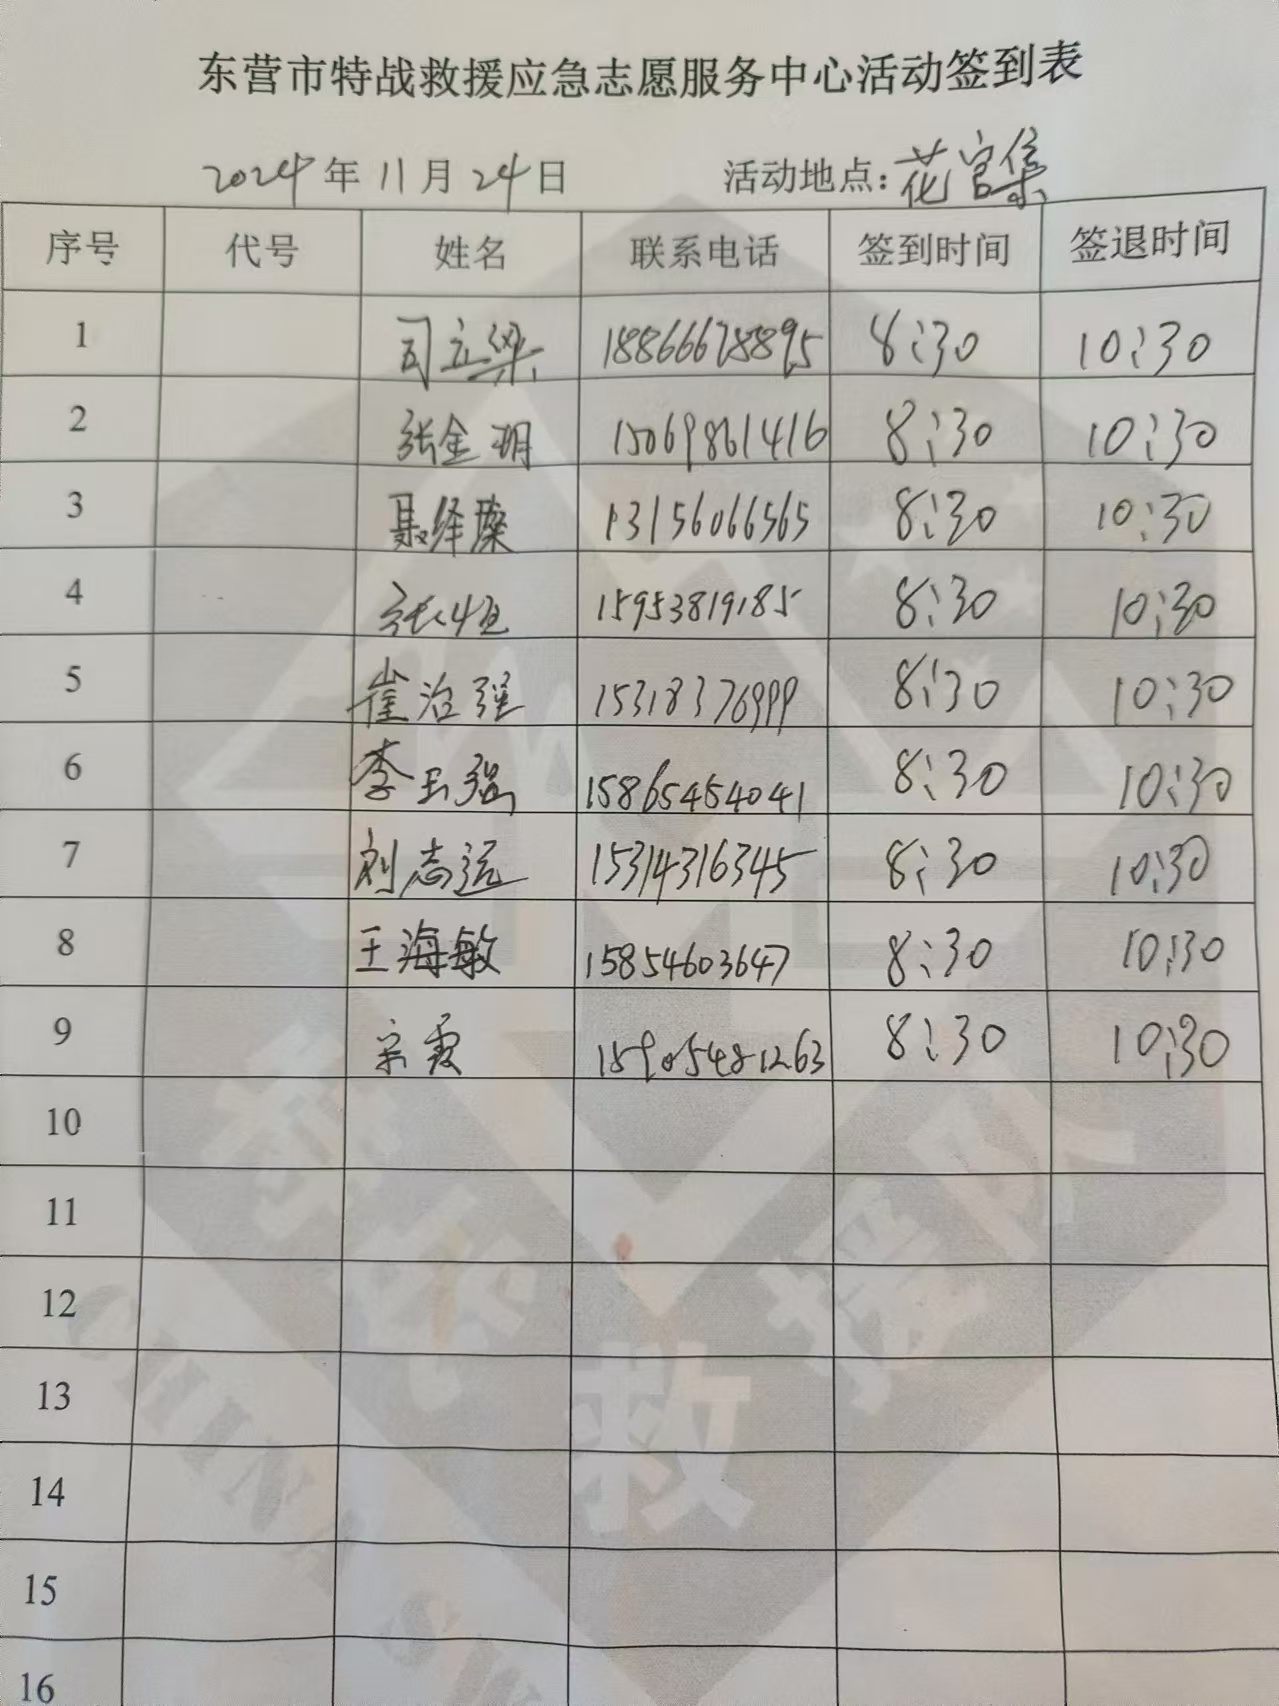 东营市特战救援应急志愿服务中心活动签到表
2024年11月24日 活动地点:花官集
序号 代号 姓名 联系电话 签到时间 签退时间
1 司立梁 18866678895 8:30 10:30
2 张金玥 15069861416 8:30 10:30
3 聂绎璨 13156066565 8:30 10:30
4 张恒 15953819185 8:30 10:30
5 崔治强 15318376999 8:30 10:30
6 李玉强 15865454041 8:30 10:30
7 刘志远 15314316345 8:30 10:30
8 王海敏 15854603647 8:30 10:30
9 宗霞 15905481263 8:30 10:30
10
11
12
13
14
15
16
救援队
CHINA SW